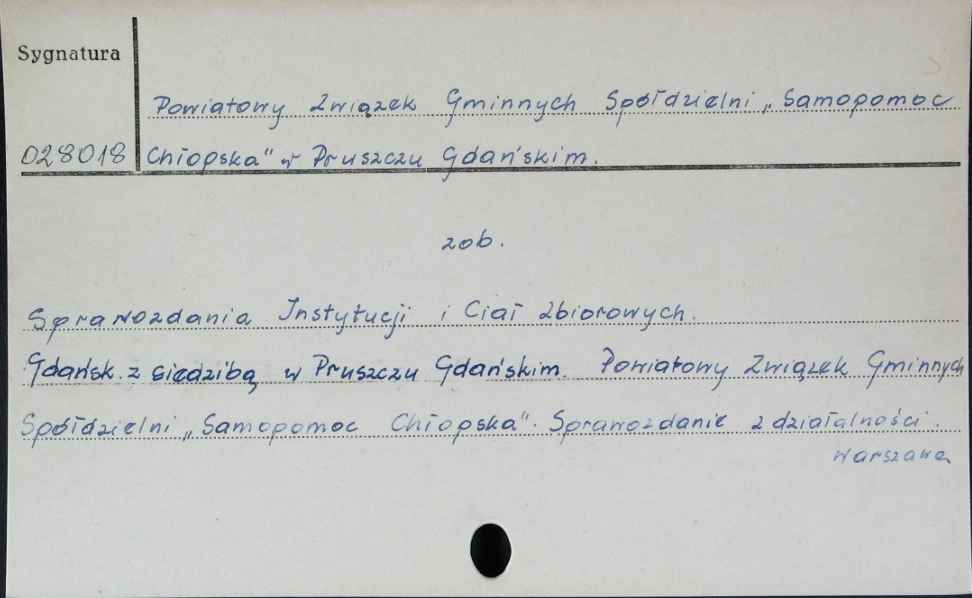 Sygnatura
Powiatowy Związek Gminnych Spółdzielni „Samopomoc
028018 Chłopska" w Pruszczu Gdańskim.
zob.
Sprawozdania Instytucji i Ciał Zbiorowych.
Gdańsk z siedzibą w Pruszczu Gdańskim. Powiatowy Związek Gminnych
Spółdzielni „Samopomoc Chłopska". Sprawozdanie z działalności.
Warszawa